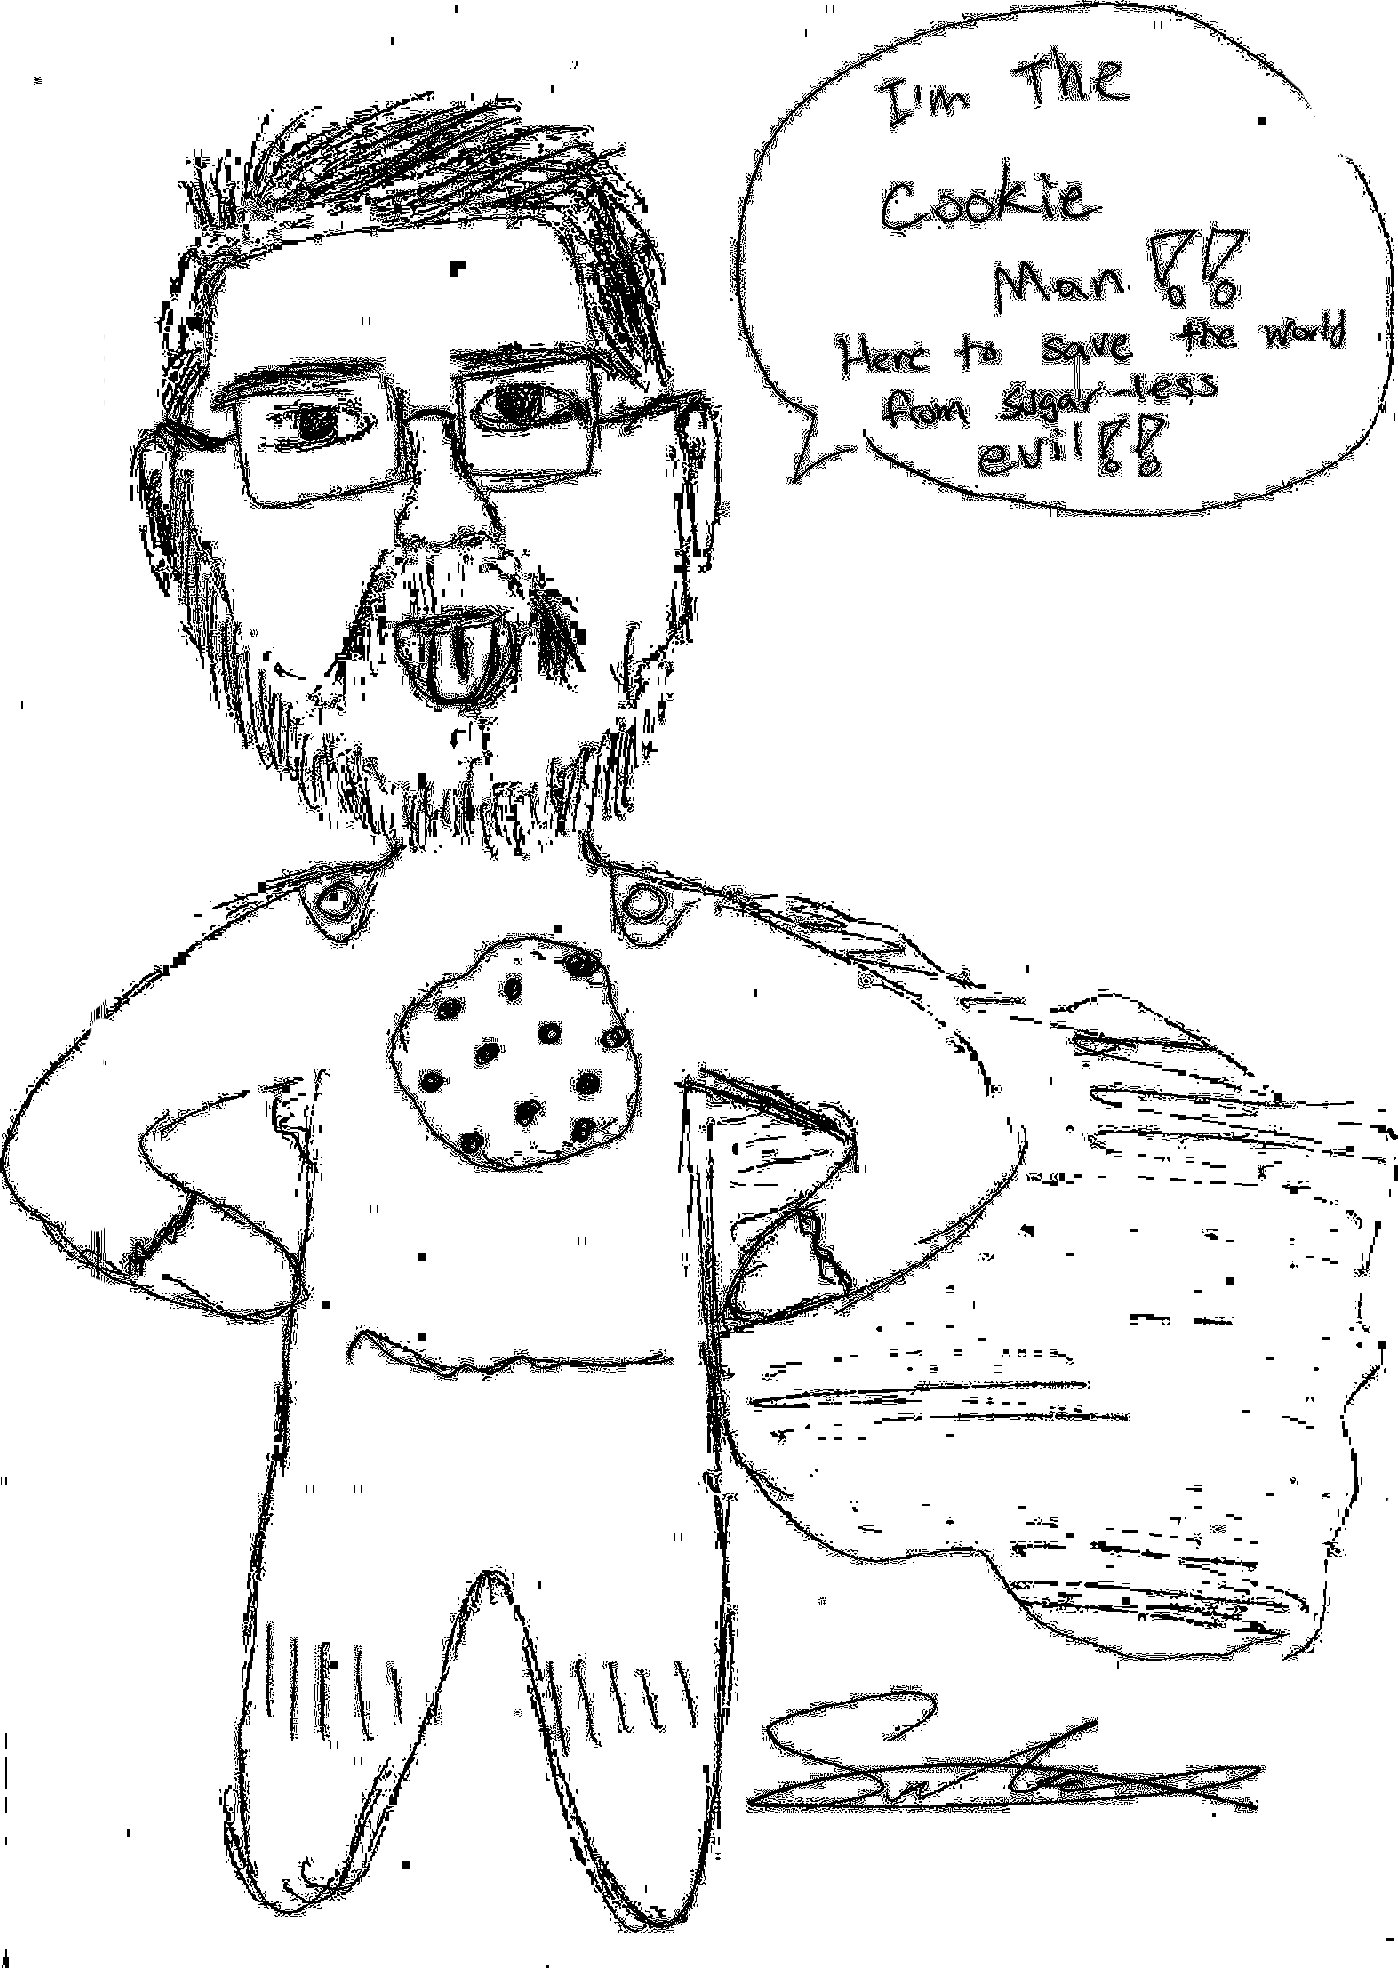 I'm The
Cookie
Man!!
Here to save the world
from sugar-less
evil!!